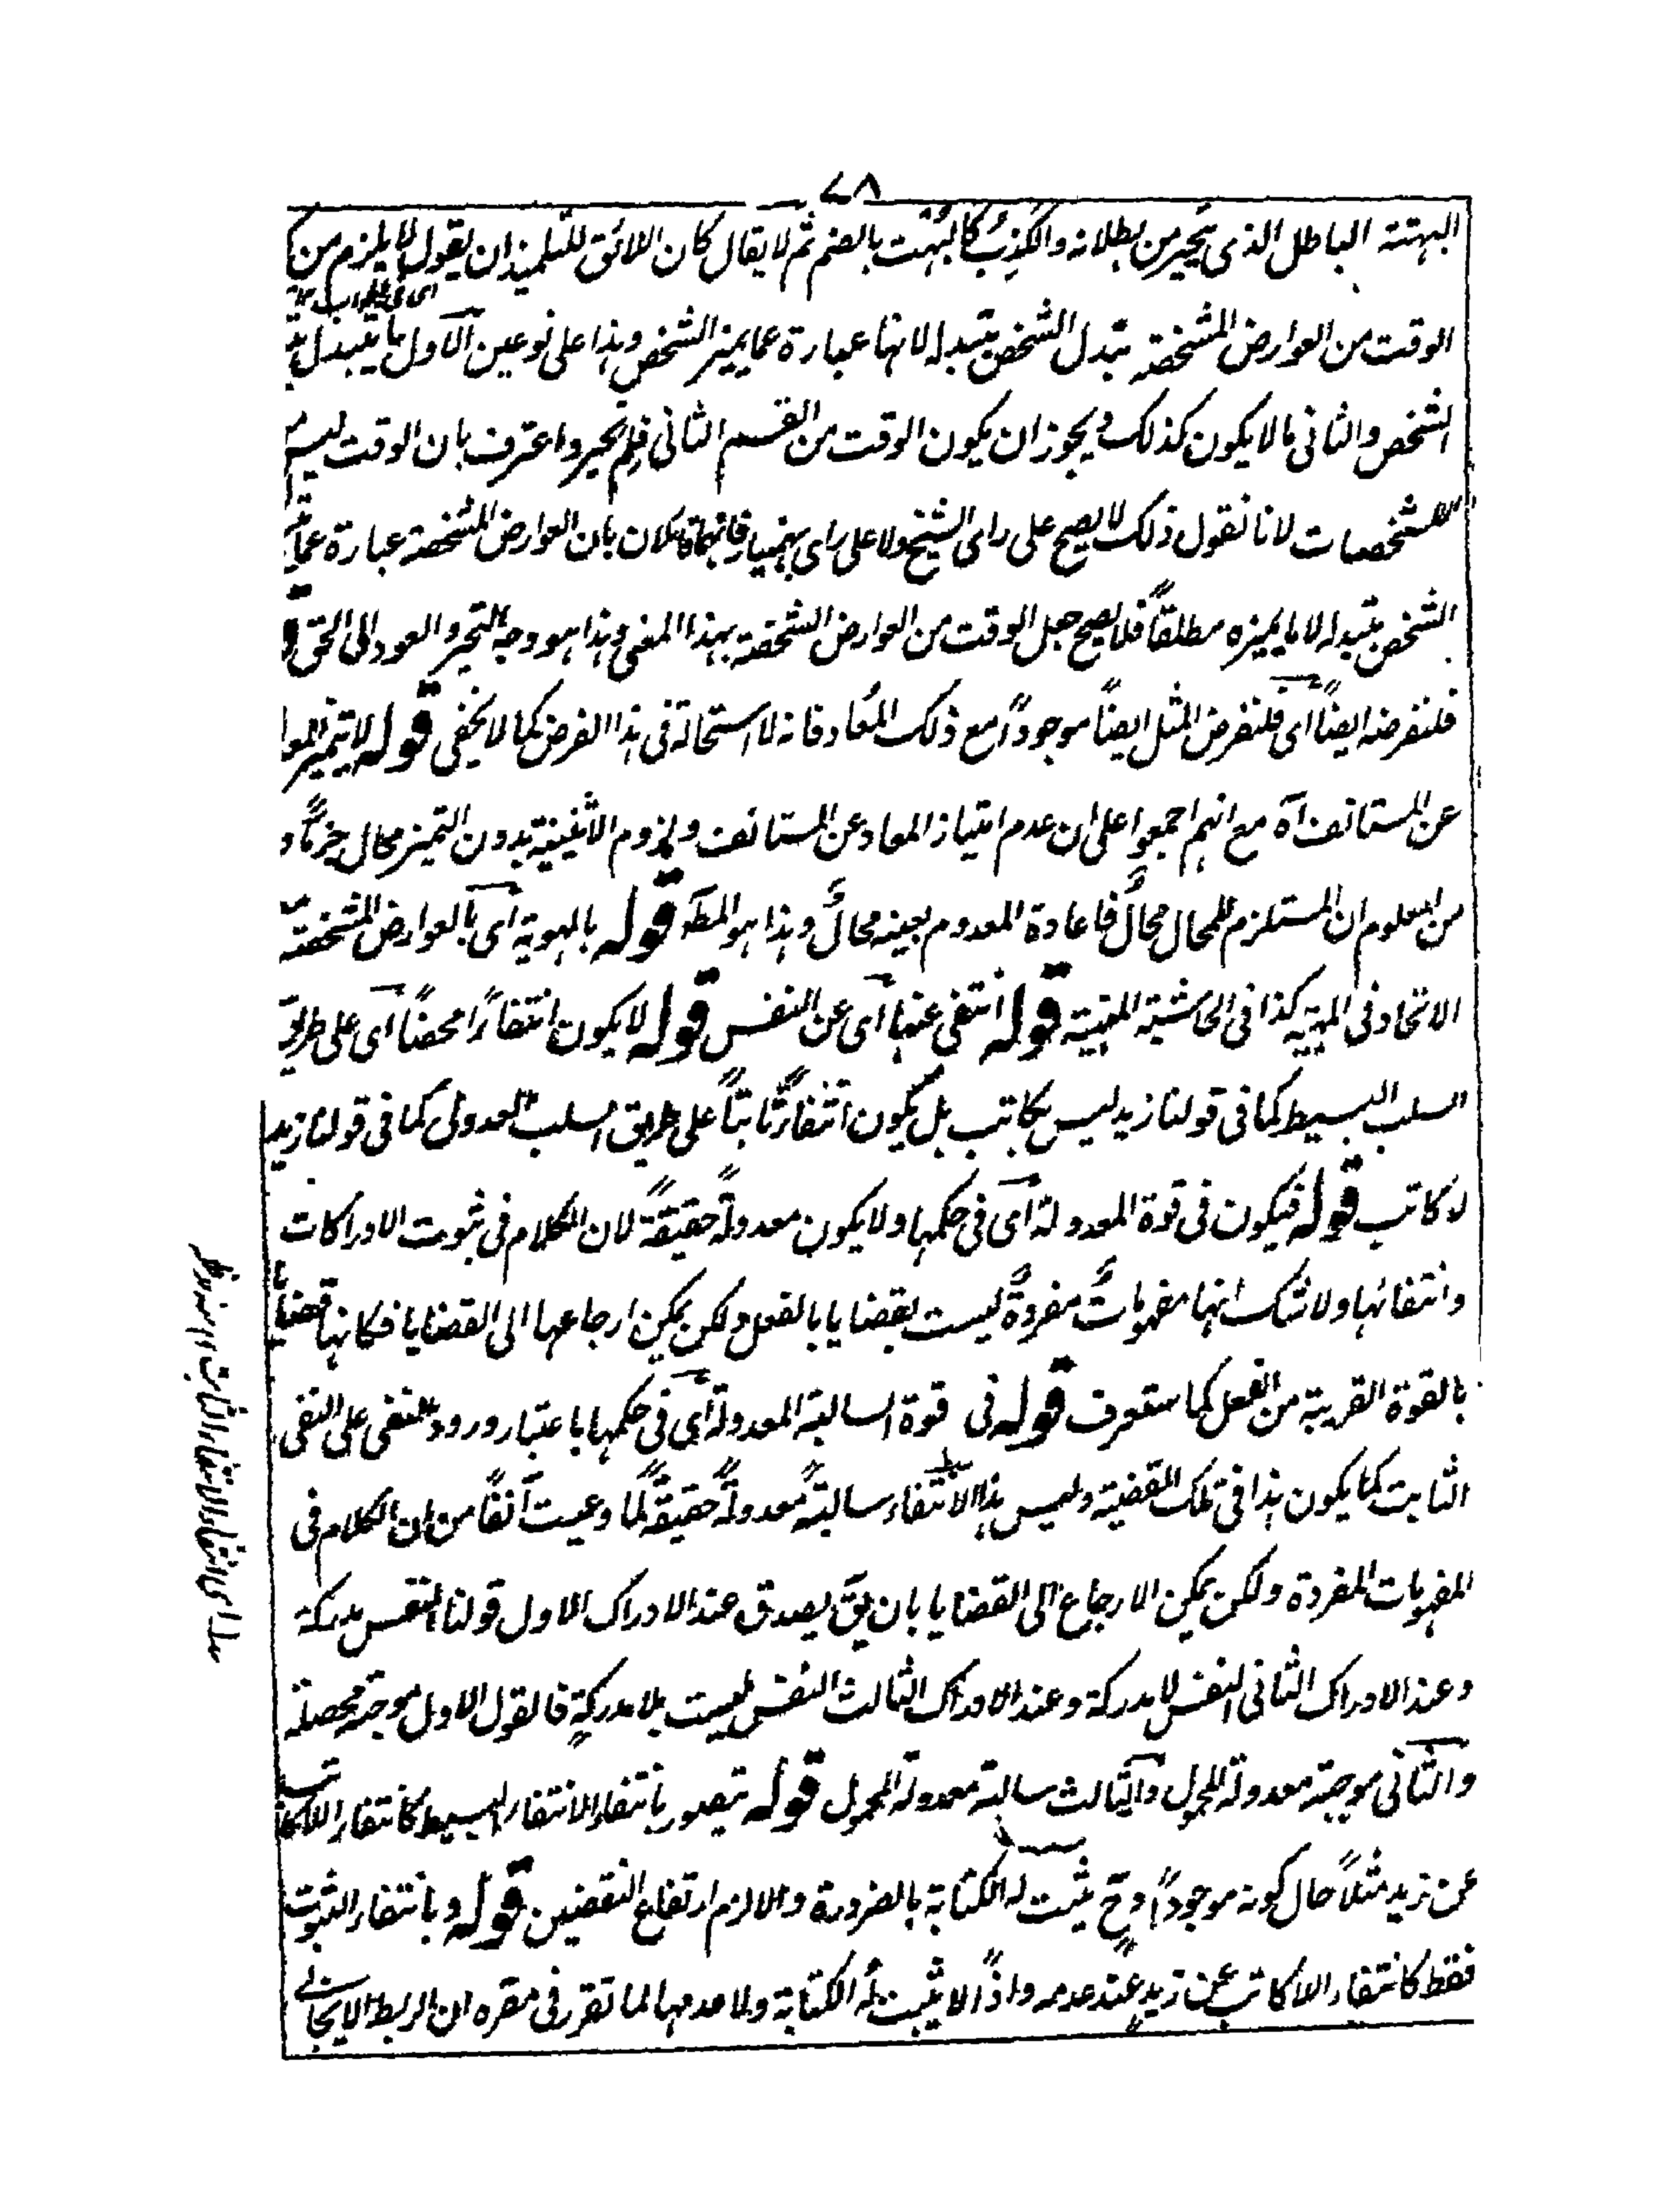 ٧٨
البهتة الباطل الذى يتحير من بطلانه والكذب كالبُهت بالضم ثم لا يقال كان اللائق للتلميذ ان يقول لا يلزم من كون
اى فى الجواب ١٢
الوقت من العوارض المشخصة تبدل الشخص بتبدله لانها عبارة عما يميز الشخص وهذا على نوعين الاول ما يتبدل به
الشخص والثانى ما لا يكون كذلك ويجوز ان يكون الوقت من القسم الثانى فلم تحير واعترف بان الوقت ليس من
المشخصات لانا نقول ذلك لا يصح على راى الشيخ ولا على راى بهمنيار فانهما قائلان بان العوارض المشخصة عبارة عما
الشخص بتبدله لا ما يميزه مطلقاً فلا يصح جعل الوقت من العوارض المشخصة بهذا المعنى وهذا هو وجه التحير والعود الى الحق
فلنفرضه ايضاً اى فلنفرض المثل ايضاً موجوداً مع ذلك المعاد فانه لا استحالة فى هذا الفرض كما لا يخفى قوله لا يتميز المعاد
عن المستانف آه مع انهم اجمعوا على ان عدم امتياز المعاد عن المستانف ولزوم الاثنينية بدون التميز محال جزماً و
من المعلوم ان المستلزم للمحال محالٌ فاعادة المعدوم بعينه محالٌ وهذا هو المط قوله بالهوية اى بالعوارض المشخصة
الاتحاد فى المهية كذا فى الحاشية المنهية قوله انتفى عنها اى عن النفس قوله لا يكون انتفاءً محضاً اى على طريق
السلب البسيط كما فى قولنا زيد ليس بكاتب بل يكون انتفاءً ثابتاً على طريق السلب العدولى كما فى قولنا زيد
لا كاتب قوله فيكون فى قوة المعدولة اى فى حكمها ولا يكون معدولةً حقيقةً لان الكلام فى ثبوت الادراكات
وانتفائها ولا شك انها مفهوماتٌ مفردةٌ ليست بقضايا بالفعل ولكن يمكن ارجاعها الى القضايا فكانها قضايا
بالقوة القريبة من الفعل كما ستعرف قوله فى قوة السالبة المعدولة اى فى حكمها باعتبار ورود النفى على النفى
الثابت كما يكون هذا فى تلك القضية وليس هذا الانتفاء سالبةً معدولةً حقيقةً لما وعيت آنفاً من ان الكلام فى
المفهومات المفردة ولكن يمكن الارجاع الى القضايا بان يق يصدق عند الادراك الاول قولنا النفس مدركة
وعند الادراك الثانى النفس لا مدركة وعند الادراك الثالث النفس ليست بلا مدركةٍ فالقول الاول موجبة محصلة
والثانى موجبة معدولة المحمول والثالث سالبة معدولة المحمول قوله تيصور بانتفاء الانتفاء البسيط كانتفاء اللاكاتب
عن زيد مثلاً حال كونه موجوداً وح يثبت له الكتابة بالضرورة والا لزم ارتفاع النقيضين قوله وبانتفاء الثبوت
فقط كانتفاء اللاكاتب عن زيدٍ عند عدمه واذاً لا يثبت له الكتابة ولا عدمها لما تقرر فى مقره ان الربط الايجابى
اى انتفاء الانتفاء الثابت ١٢